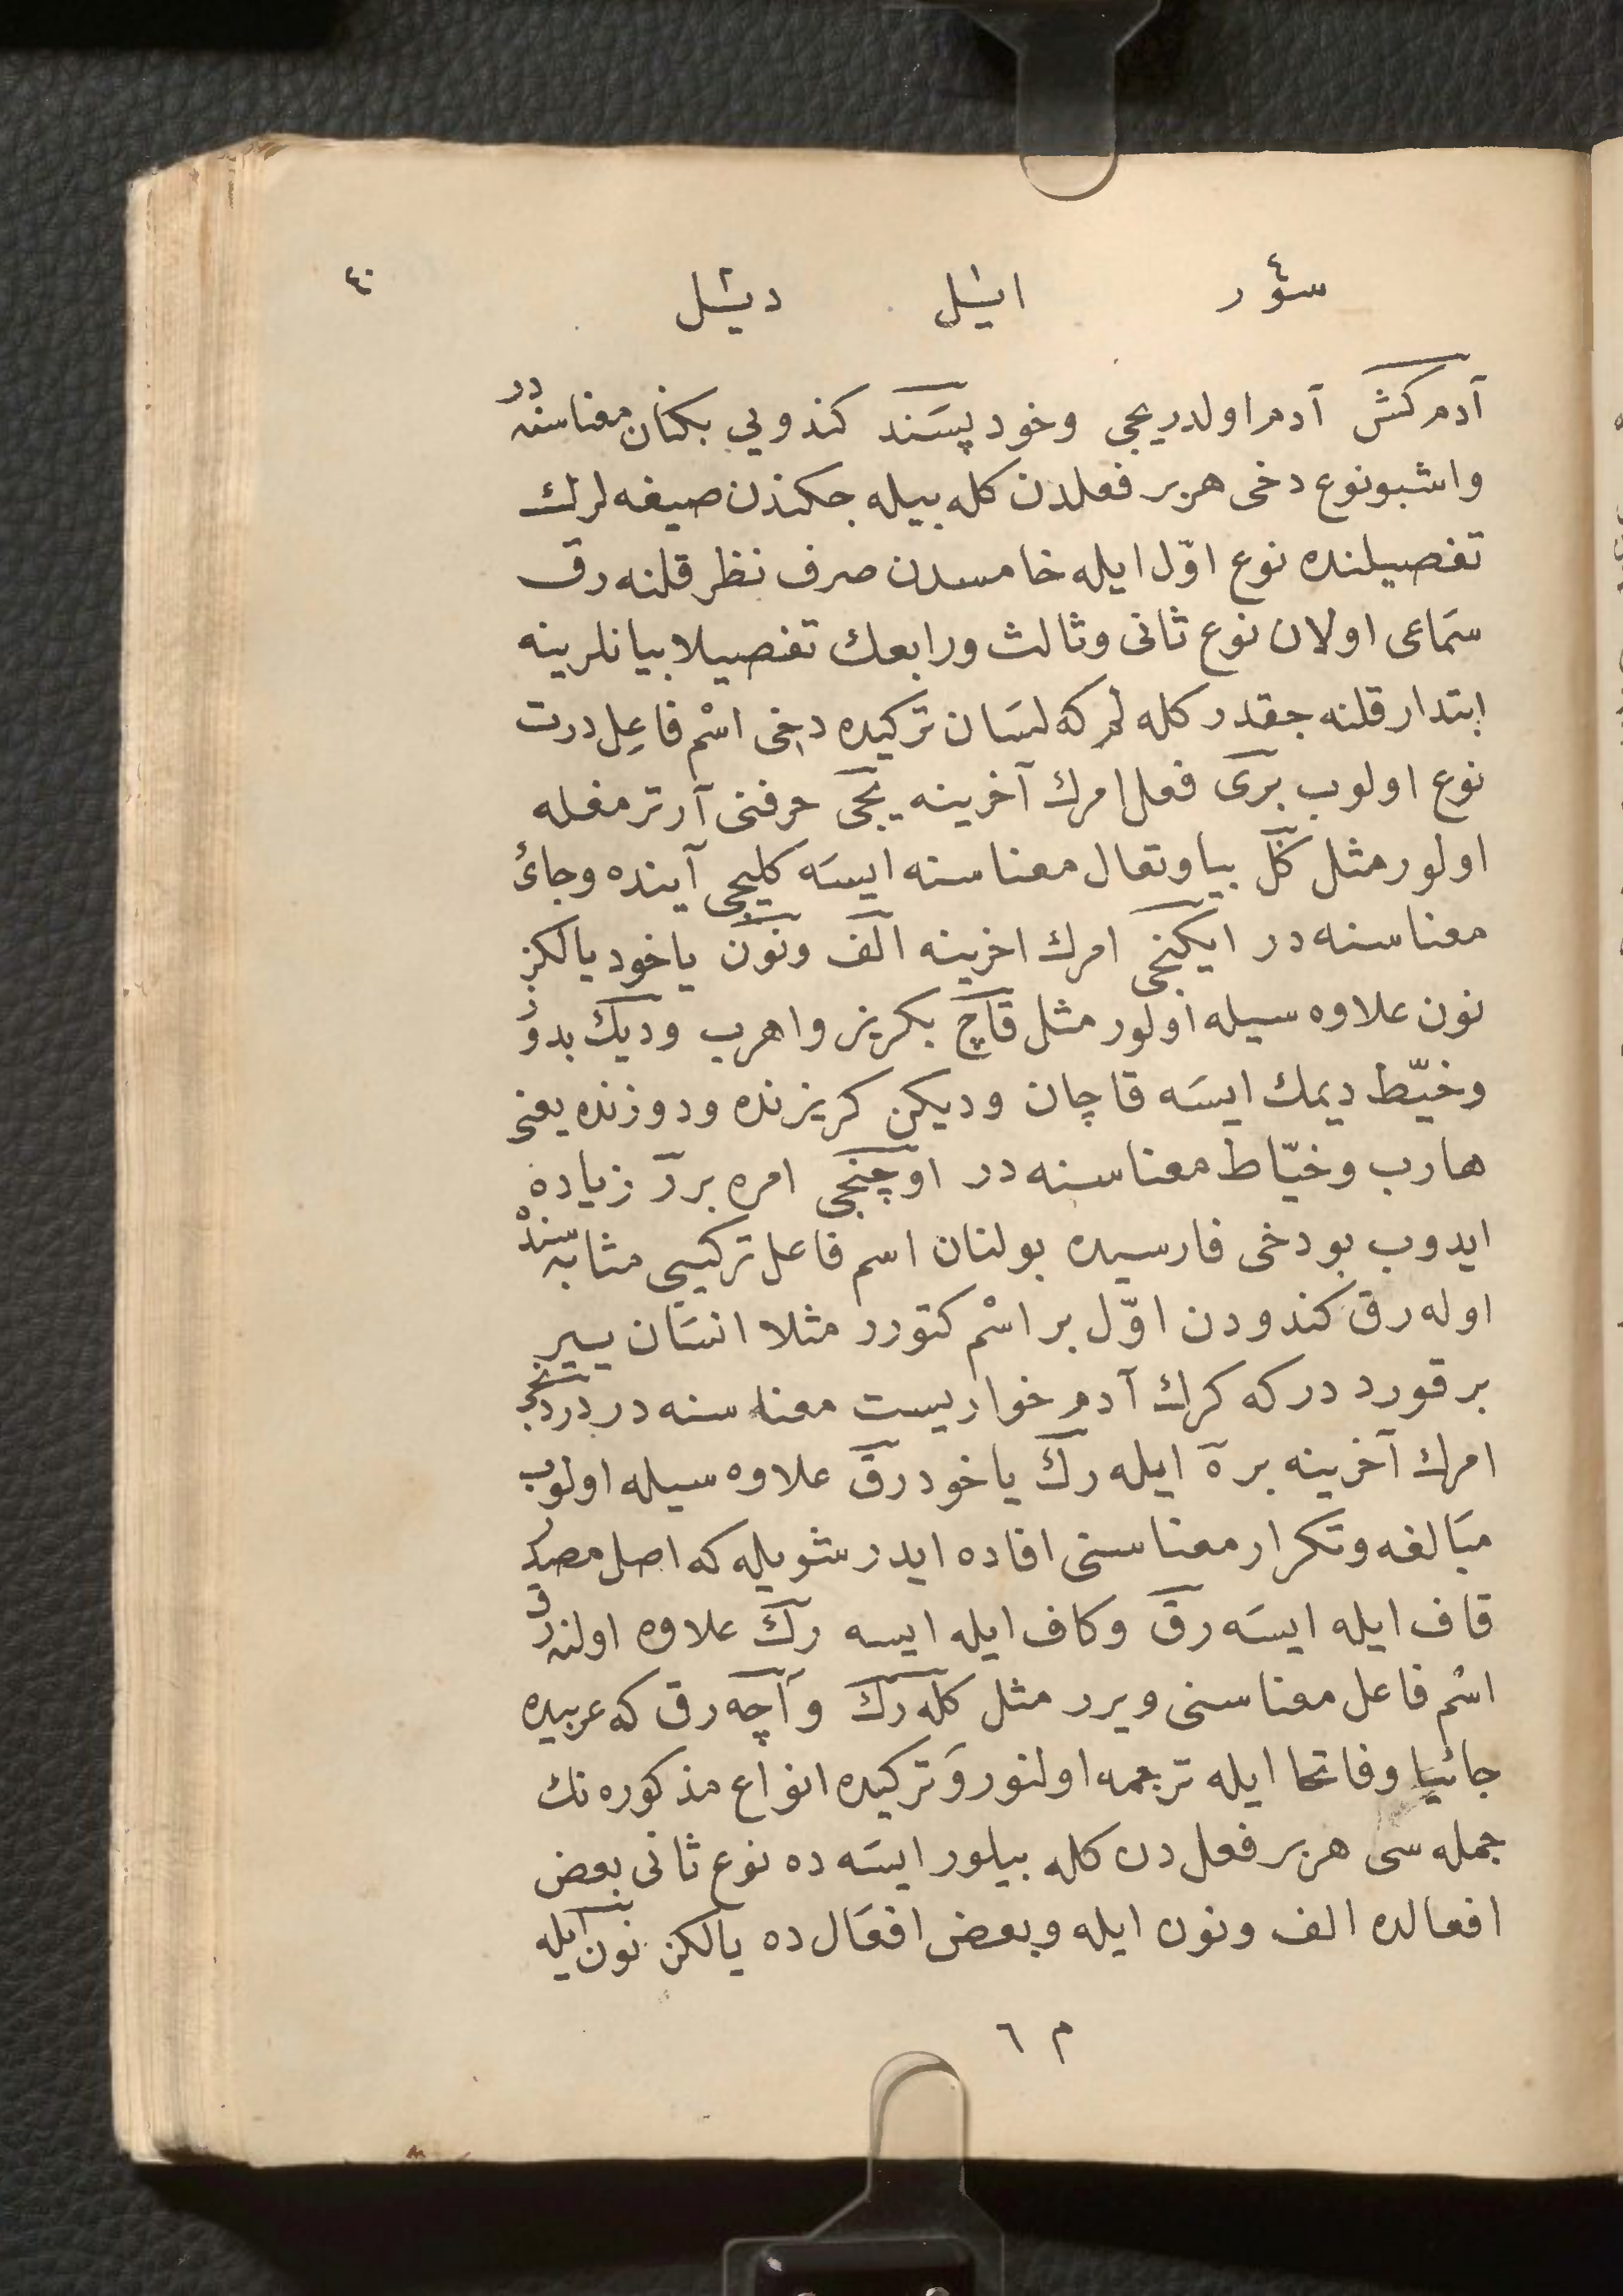 سؤر ٤ ایشل ١ دیشل ٢ ٤٠
آدم كش آدم اولدریجی وخود پسَند كندویی بكنان معناسنه در
واشبو نوع دخی هربر فعلدن كله بیله جكندن صیغه لرك
تفصیلنده نوع اوّل ایله خامسدن صرف نظر قلنه رق
سمَاعی اولان نوع ثانی وثالث ورابعك تفصیلا بیانلرینه
ابتدار قلنه جقدر كله لم كه لسَان تركیده دخی اسْم فاعِل درت
نوع اولوب بری فعل امرك آخرینه یجی حرفنی آرترمغله
اولور مثل كَل بیا وتعال معناسنه ایسَه كلیجی آینده وجائ
معناسنه در ایكنجی امرك اخرینه الف ونون یاخود یالكز
نون علاوه سیله اولور مثل قاچ بكریز واهرب ودیك بدوز
وخیّط دیمك ایسَه قاچان ودیكن كریزنده ودوزنده یعنی
هارب وخیّاط معناسنه در اوچنجی امره بر ر زیاده
ایدوب بو دخی فارسیده بولنان اسم فاعل تركیبی مثابه سنده
اوله رق كندودن اوّل بر اسْم كتورر مثلا انسَان ییر
بر قورد در كه كرك آدم خواریست معناسنه در دردنجی
امرك آخرینه بر ه ایله رك یاخود رق علاوه سیله اولوب
مبَالغه وتكرار معناسنی افاده ایدر شویله كه اصل مصدر
قاف ایله ایسَه رق وكاف ایله ایسه رك علاوه اولنه رق
اسْم فاعل معناسنی ویرر مثل كله رك وآچه رق كه عربیده
جائیا وفاتحا ایله ترجمه اولنور وَتركیده انواع مذكوره نك
جمله سی هربر فعل دن كله بیلور ایسَه ده نوع ثانی بعض
افعالده الف ونون ایله وبعض افعَال ده یالكز نون ایله
م ٦